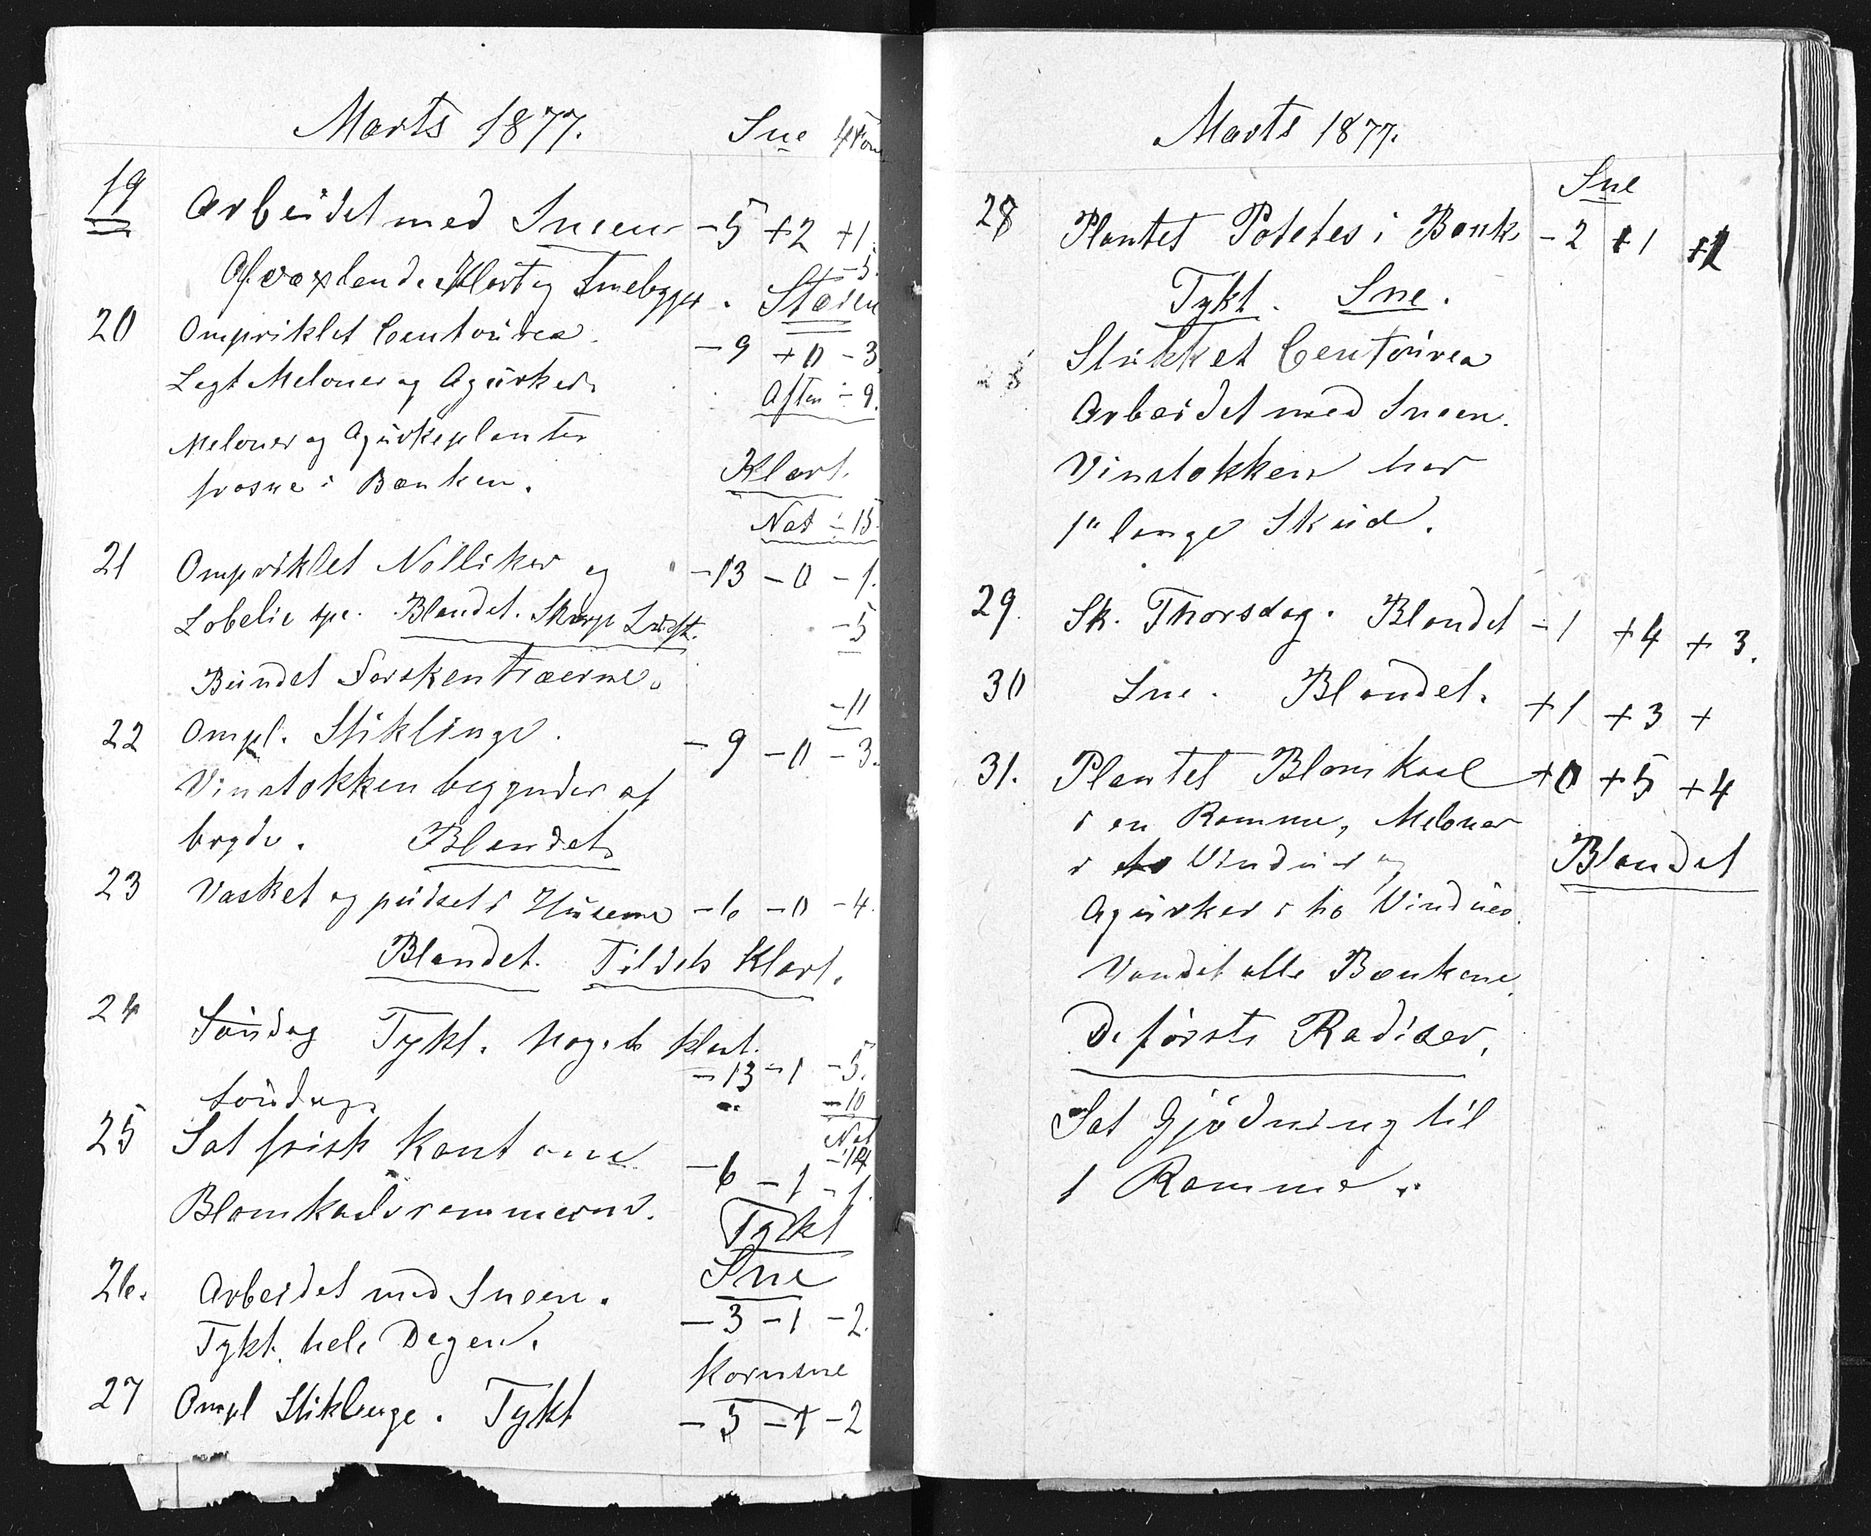 Marts 1877. Sne 4 Tom
19 Arbeidet med Sneen -5 +2 +1.
Afvexlende Klart og Snebyger. -5.
Stæren
20 Ompriklet Centaurea. -9 +0 -3.
Lagt Meloner og Agurker.
Aften ÷ 9.
Meloner og Agurkeplanter
frosne i Bænken.
Klart.
Nat ÷ 15.
21 Ompriklet Nelliker og -13 -0 -1.
Lobelie spe. Blandet. Skarp Luft. -5
Bundet Ferskentræerne.
-11
22 Ompl. Stiklinge. -9 -0 -3.
Vinstokken begynder at
bryde. Blandet.
23 Vasket og pudset i Husene -6 -0 -4.
Blandet. Tildels Klart.
24 Søndag Tykt. Noget klart.
-13 -1 -5.
Søndag -10
Nat
-14
25 Sat frisk Kant om -6 -1 -1.
Blomkaalsrammerne.
Tykt
Sne
26. Arbeidet med Sneen. -3 -1 -2.
Tykt hele Dagen.
Kornsne
27 Ompl Stiklinge. Tykt -5 -1 -2
Marts 1877.
Sne
28 Plantet Potetes i Bænk -2 +1 +1
Tykt. Sne.
Stikket Centaurea
Arbeidet med Sneen.
Vinstokken har
1" lange Skud.
29. Sk. Thorsdag. Blandet -1 +4 +3.
30 Sne. Blandet. +1 +3 +
31. Plantet Blomkaal +0 +5 +4
i en Ramme, Meloner
i to Vinduer og
Blandet
Agurker i to Vinduer.
Vandet alle Bænkene.
De første Radiser.
Sat Gjødning til
1 Ramme.